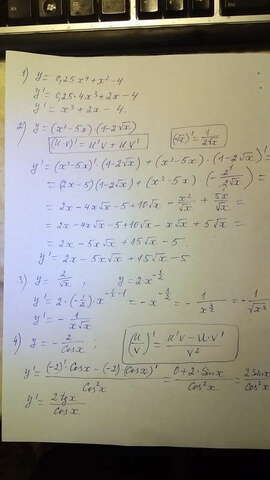 1) y = 0,25x⁴ + x² - 4
y' = 0,25·4x³ + 2x - 4
y' = x³ + 2x - 4.
2) y = (x² - 5x)(1 - 2√x)
(u·v)' = u'v + uv'
(√x)' = 1/(2√x)
y' = (x² - 5x)'·(1 - 2√x) + (x² - 5x)·(1 - 2√x)' =
= (2x - 5)(1 - 2√x) + (x² - 5x)·(-2·1/(2√x)) =
= 2x - 4x√x - 5 + 10√x - x²/√x + 5x/√x =
= 2x - 4x√x - 5 + 10√x - x√x + 5√x =
= 2x - 5x√x + 15√x - 5.
y' = 2x - 5x√x + 15√x - 5
3) y = 2/√x ; y = 2·x^(-1/2)
y' = 2·(-1/2)·x^(-1/2-1) = -x^(-3/2) = -1/x^(3/2) = -1/√x³
y' = -1/(x√x)
4) y = -2/Cosx ; (u/v)' = (u'v - u·v')/v²
y' = ((-2)'·Cosx - (-2)·(Cosx)')/Cos²x = (0 + 2·Sinx)/Cos²x = 2Sinx/Cos²x
y' = 2tgx/Cosx